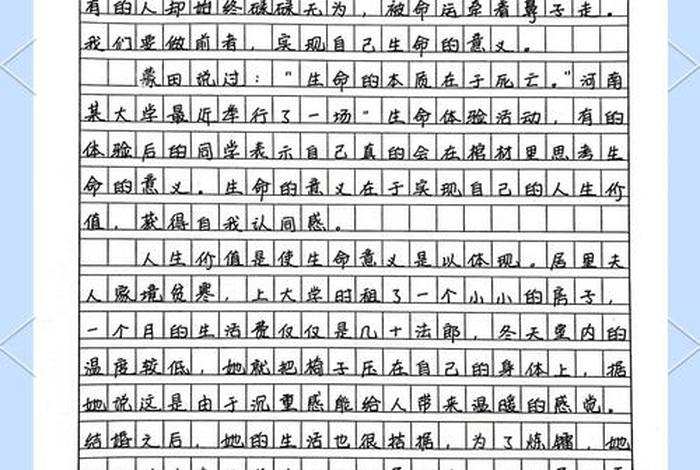 有的人却始终碌碌无为，被命运牵着鼻子走。
我们要做前者，实现自己生命的意义。
蒙田说过："生命的本质在于死亡。"河南
某大学最近举行了一场"生命体验活动，有的
体验后的同学表示自己真的会在棺材里思考生
命的意义。生命的意义在于实现自己的人生价
值，获得自我认同感。
人生价值是使生命意义是以体现。居里夫
人家境贫寒，上大学时租了一个小小的房子，
一个月的生活费仅仅是几十法郎，冬天室内的
温度较低，她就把椅子压在自己的身体上，据
她说这是由于沉重感能给人带来温暖的感觉。
结婚之后，她的生活也很拮据，为了炼镭，她